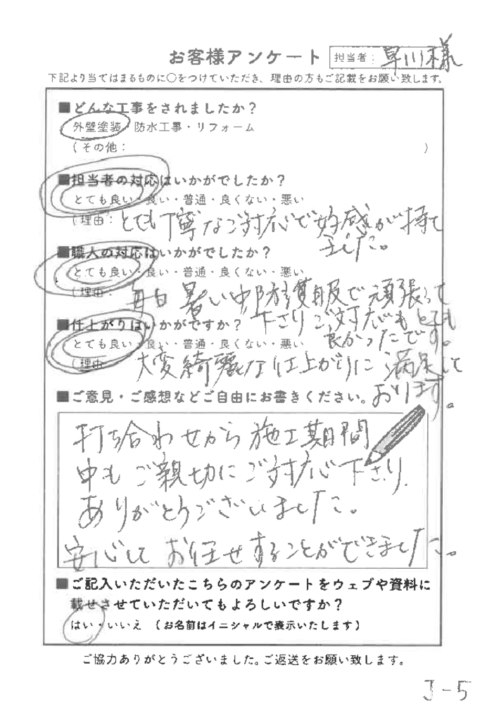 お客様アンケート 担当者: 早川様
下記より当てはまるものに○をつけていただき、理由の方もご記載をお願い致します。
■どんな工事をされましたか？
外壁塗装・防水工事・リフォーム
(その他: )
■担当者の対応はいかがでしたか？
とても良い・良い・普通・良くない・悪い
(理由: とても丁寧なご対応で好感が持て
ました。
■職人の対応はいかがでしたか？
とても良い・良い・普通・良くない・悪い
(理由: 毎日暑い中防護服で頑張って
下さりご対応もとても
良かったです。
■仕上がりはいかがですか？
とても良い・良い・普通・良くない・悪い
(理由: 大変綺麗な仕上がりに満足して
おります。
■ご意見・ご感想などご自由にお書きください。
打ち合わせから施工期間
中もご親切にご対応下さり、
ありがとうございました。
安心してお任せすることができました。
■ご記入いただいたこちらのアンケートをウェブや資料に
載せさせていただいてもよろしいですか？
はい・いいえ (お名前はイニシャルで表示いたします)
ご協力ありがとうございました。ご返送をお願い致します。
J-5